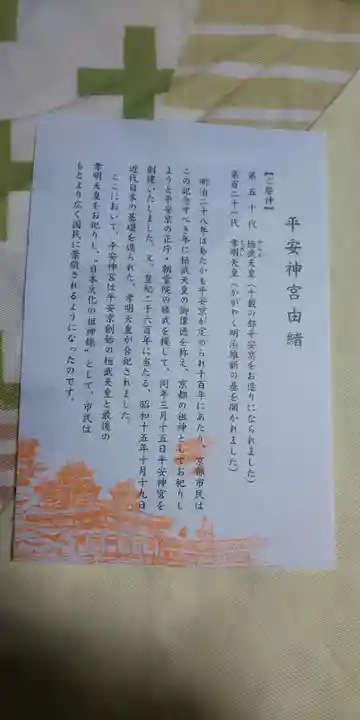 平安神宮由緒
【ご祭神】
第五十代 桓武天皇（千載の都平安京をお造りになられました）
第百二十一代 孝明天皇（かがやく明治維新の基を開かれました）
明治二十八年はあたかも平安京が定められ千百年にあたり、京都市民は
この記念すべき年に桓武天皇の御偉徳を称え、京都の祖神としてお祀りし
ようと平安京の正庁・朝堂院の様式を模して、同年三月十五日平安神宮を
創建いたしました。又、皇紀二千六百年に当たる、昭和十五年十月十九日
近代日本の基礎を造られた、孝明天皇が合祀されました。
ここにおいて、平安神宮は平安京創始の桓武天皇と最後の
孝明天皇をお祀りし、"日本文化の祖神様"として、市民は
もとより広く国民に崇敬されるようになったのです。